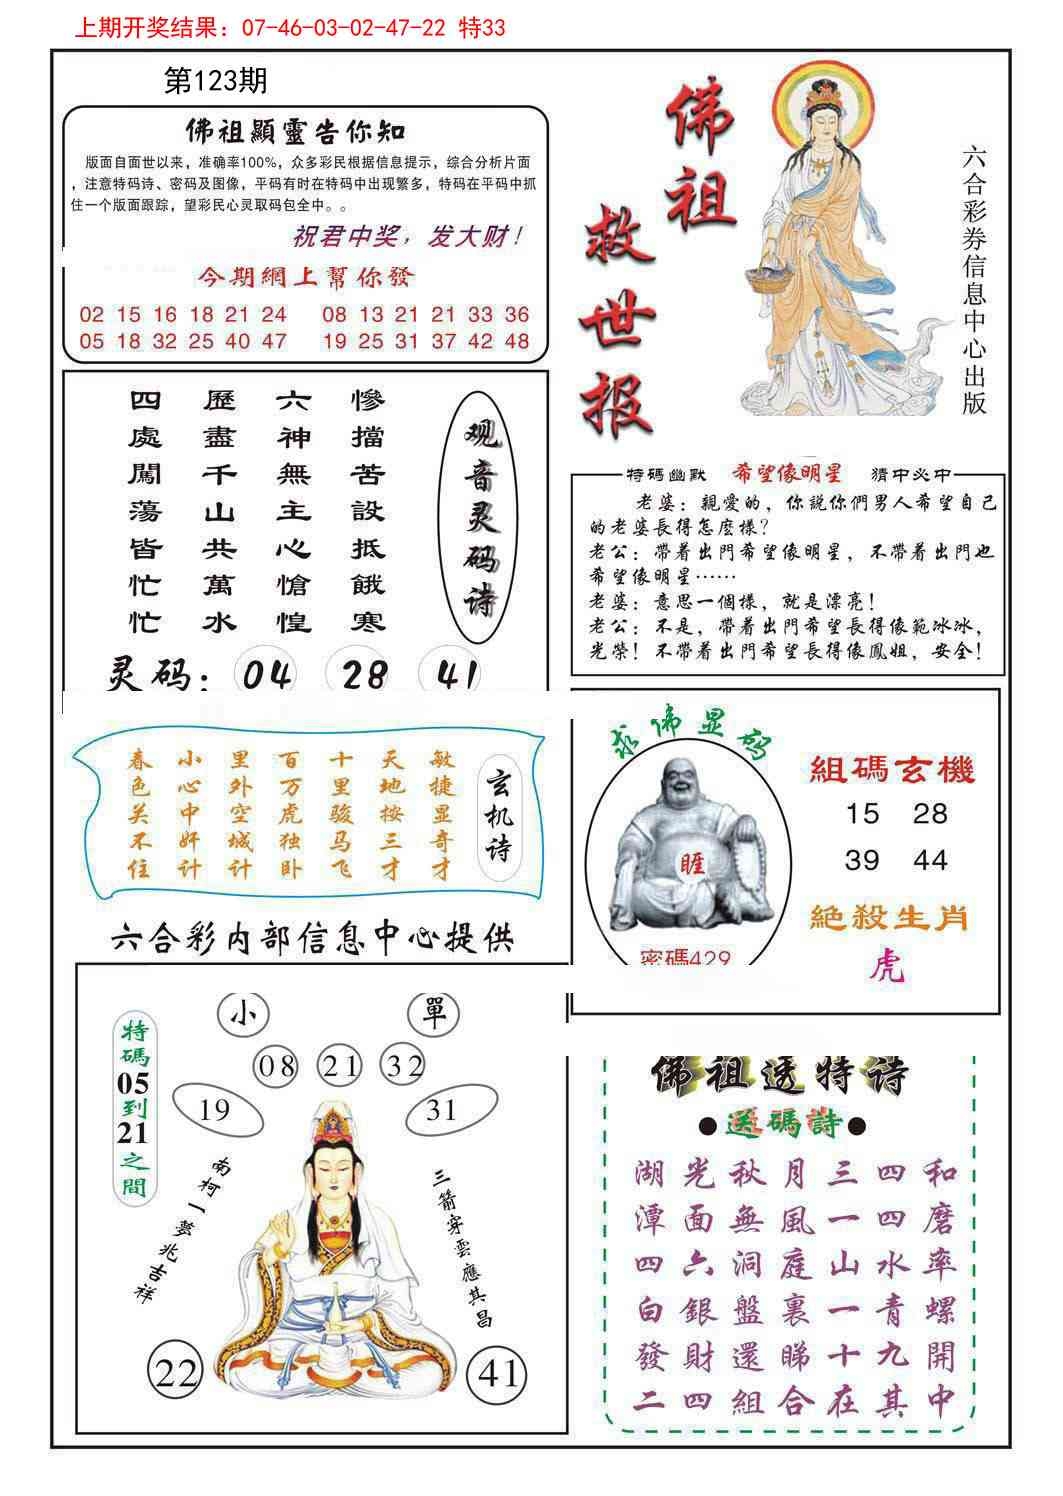 上期开奖结果：07-46-03-02-47-22 特33
第123期
佛祖顯靈告你知
版面自面世以来，准确率100%，众多彩民根据信息提示，综合分析片面
，注意特码诗、密码及图像，平码有时在特码中出现繁多，特码在平码中抓
住一个版面跟踪，望彩民心灵取码包全中。。
祝君中奖，发大财！
今期網上幫你發
02 15 16 18 21 24 08 13 21 21 33 36
05 18 32 25 40 47 19 25 31 37 42 48
佛祖
救世报
六合彩券信息中心出版
观音灵码诗
慘擋苦設抵餓寒
六神無主心愴惶
歷盡千山共萬水
四處闖蕩皆忙忙
灵码：04 28 41
特碼幽默 希望像明星 猜中必中
老婆：親愛的，你説你們男人希望自己
的老婆長得怎麽樣？
老公：帶着出門希望像明星，不帶着出門也
希望像明星……
老婆：意思一個樣，就是漂亮！
老公：不是，帶着出門希望長得像範冰冰，
光榮！不帶着出門希望長得像鳳姐，安全！
玄机诗
敏捷显奇才
天地按三才
十里骏马飞
百万虎独卧
里外空城计
小心中奸计
春色关不住
六合彩内部信息中心提供
求佛显码
睚
密碼429
組碼玄機
15 28
39 44
絕殺生肖
虎
特碼05到21之間
小 單
08 21 32
19 31
南柯一夢兆吉祥
三箭穿雲應其昌
22 41
佛祖透特诗
●送碼詩●
湖光秋月三四和
潭面無風一四磨
四六洞庭山水率
白銀盤裏一青螺
發財還睇十九開
二四組合在其中